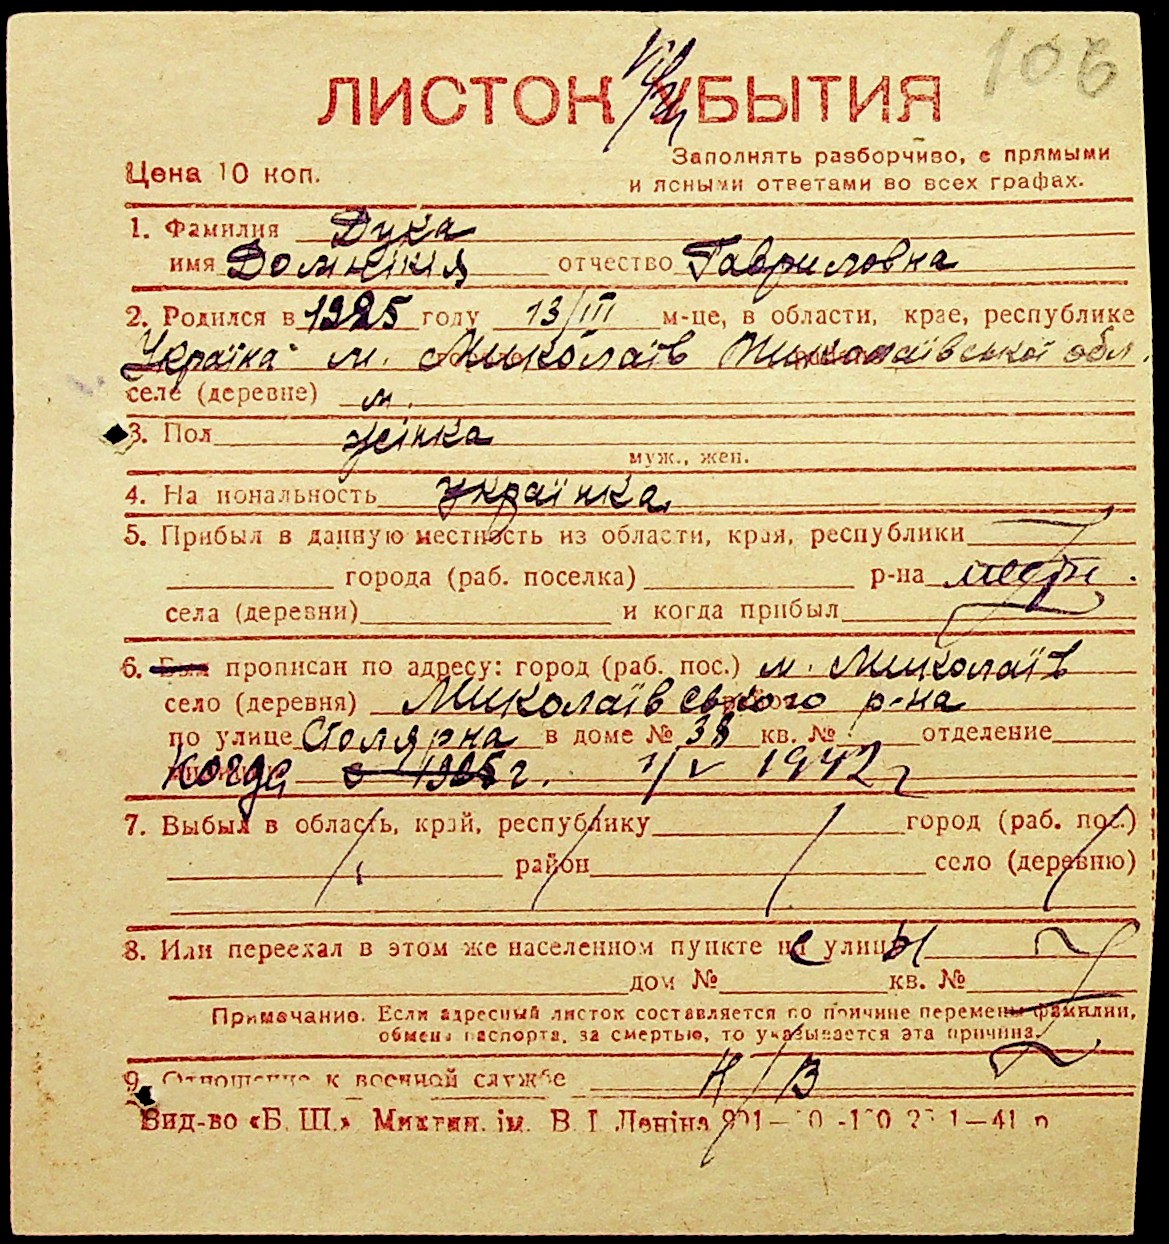 106
ЛИСТОК УБЫТИЯ
Цена 10 коп.
Заполнять разборчиво, с прямыми
и ясными ответами во всех графах.
1. Фамилия Дука
имя Домнікія отчество Гавриловна
2. Родился в 1925 году 13/III м-це, в области, крае, республике
Україна м. Миколаїв Миколаївської обл.
селе (деревне) м.
3. Пол жінка
муж., жен.
4. На иональность українка
5. Прибыл в данную местность из области, края, республики
города (раб. поселка) р-на
села (деревни) и когда прибыл
6. Был прописан по адресу: город (раб. пос.) м. Миколаїв
село (деревня) Миколаївського р-на
по улице Столярна в доме № 38 кв. № отделение
Когда с 1925 г. 1/V 1942 г
7. Выбыл в область, край, республику город (раб. пос.)
район село (деревню)
8. Или переехал в этом же населенном пункте с улицы
дом № кв. №
Примечание. Если адресный листок составляется по причине перемены фамилии,
обмена паспорта, за смертью, то указывается эта причина.
9. Отношение к военной службе Н/В
Вид-во «Б. Ш.» Миктип. ім. В. І. Леніна 41 р